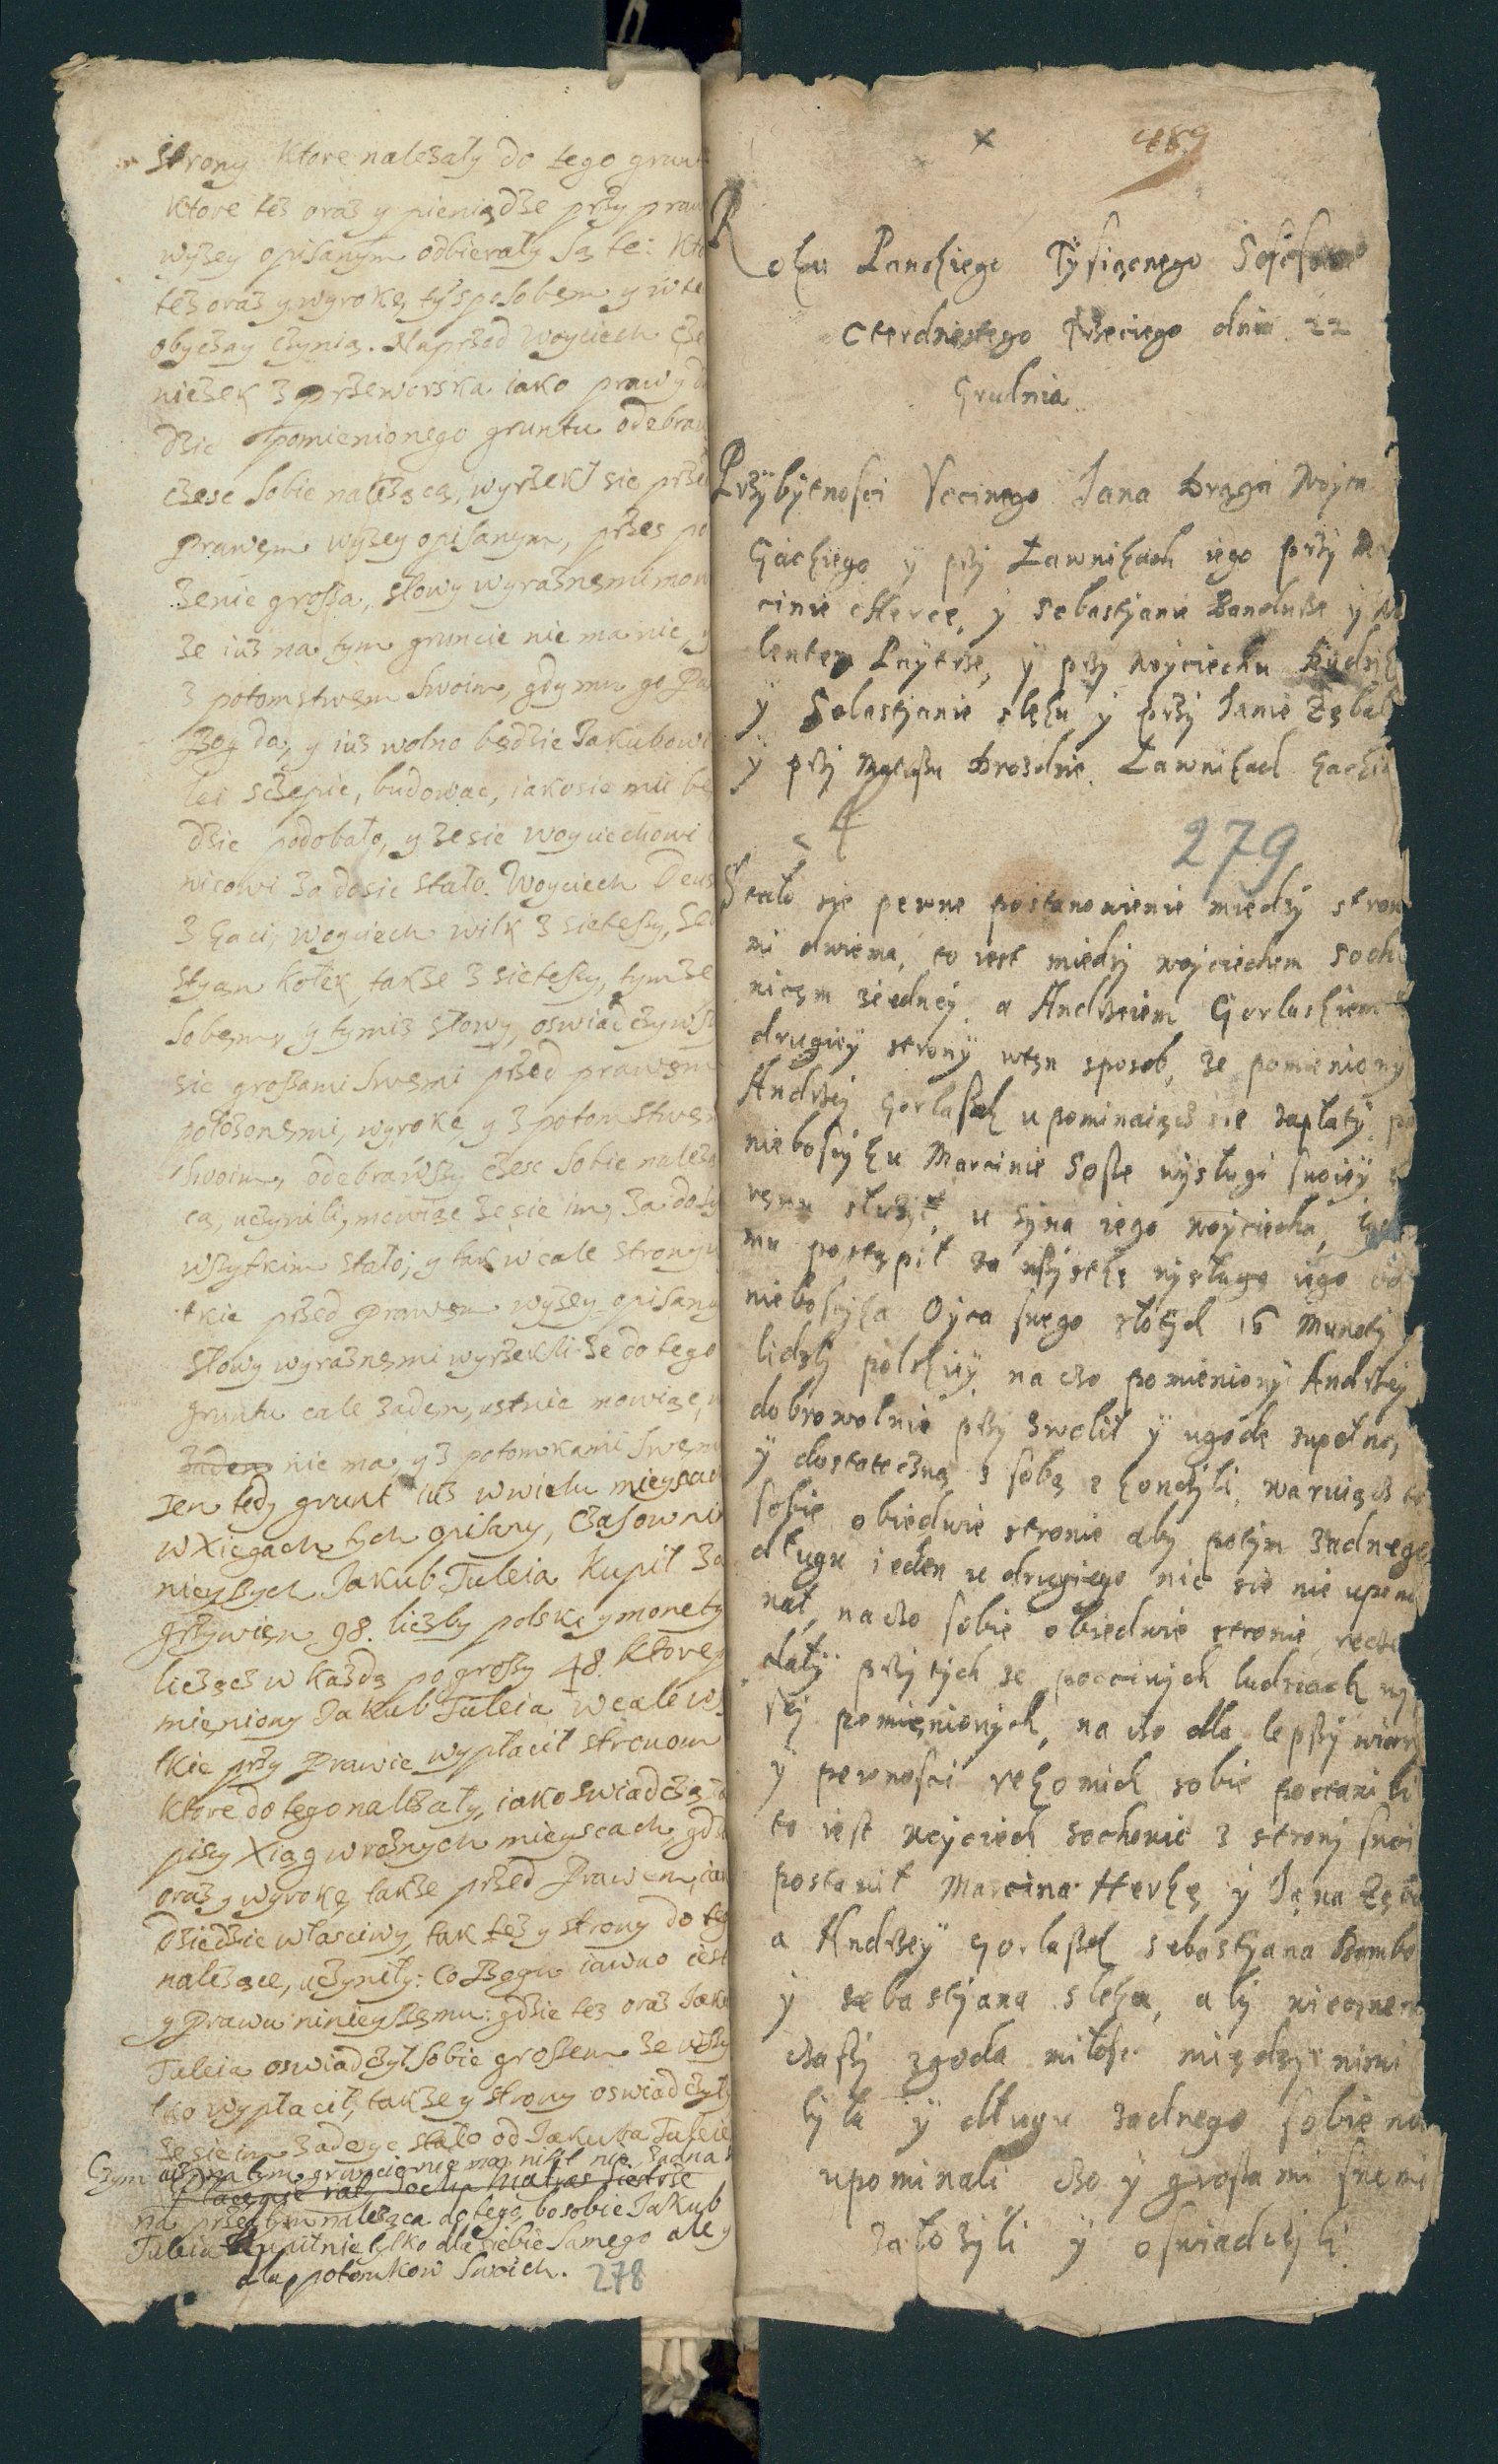 Strony Ktore nalezały do tego grun
Ktore tes oras y pieniądze przy praw
wyzey opisanym odbierały są te: Kto
tes oras y wyrokę tys posobem y w te
obyczay czynią. Naprzod Woyciech
niezek z przeworska iako prawy
dzic pomienionego gruntu odebraw
czesc sobie nalezącą, wyrzekł sie prze
Prawem wyzey opisanym, przes po
zenie grosza, słowy wyraznemi mow
ze ius na tym gruncie nie ma nic, y
z potomstwem swoim, gdy mu go Pan
Bog da, y ius wolno będzie Jakubowi
lei sczepic, budowac, iako sie mu be
dzie podobało, y ze sie Woyciechowi
nicowi za dosic stało. Woyciech
z Gaci, Woyciech wilk z sieteszy, Se
styan Kołek, takze z sieteszy, tymze
sobem, y tymis słowy, oswiadczywszy
sie groszami swemi przed prawem
połozonemi, wyrokę, y z potomstwem
swoim, odebrawszy czesc sobie nalezą
cą, uczynili, mowiąc ze sie im, za dosy
wszytkim stało; y tak wcale strony w
tkie przed Prawem wyzey opisany
słowy wyraznemi wyrzekli ze do tego
gruntu cale zaden, ustnie mowiąc,
zaden nic ma, y z potomkami swemi
Ten tedy grunt ius w wielu mieyscach
w Xięgach tych opisany, czasow ni
nieyszych Jakub Tuleia Kupił za
grzywien 98. liczby polski y monety
licząc w kazdą po groszy 48. Ktore po
mieniony Jakub Tuleia wcale ws
tkie przy Prawie wypłacił stronom
Ktore do tego nalezały, iako swiadczą
pisy Xiąg w roznych mieyscach, gdz
oras y wyrokę takze przed Prawem, iak
Dziedzic własciwy, tak tes y strony do te
nalezące, uczyniły: co Bogu iawno iest
y Prawu ninieyszemu: gdzie tes oras Jaku
Tuleia oswiadczył sobie groszem ze wszy
tko wypłacił, takze y strony oswiadczyły
ze sie im zadosyc stało od Jakuba Tuleie
Czym ius na tym gruncie nie ma nikt nic, zadna
na przed tym naleząca do tego, bo sobie Jakub
Tuleia kupił nie tylko dla siebie samego ale y
dla potomkow swoich. 278
489
Roku Panskiego Tysiącnego Szescsetnego
czterdziestego Trzeciego dnia 22
Grudnia
Przybytnosci Vcciwego Jana Draga Woyta
Gackiego y przy Ławnikach iego przy Ma
cinie Herce, y Sebastyanie Bandurze y
lentem y przy Woyciechu
y Sebastyanie slęku y przy Janie Zębal
y przy Matuszu Drozdzie Ławnikach Gackie
279
Stało sie pewne postanowienie miedzy stron
mi dwiema, to iest miedzy Woyciechem Socho
nicem ziedney a Andrzeiem Gorlaskiem z
drugiey strony wten sposob, ze pomieniony
Andrzey Gorlaszk upominaiącs sie zapłaty po
nieboszczyku Marcinie Sosze wysługi swoiey
remu słuzył, u syna iego Woyciecha,
mu postąpił za wszystkę wysługe iego od
nieboszczyka Oyca swego złotych 16 Munety y
liczby polskiey na czo pomieniony Andrzey
dobrowolnie przyzwolił y ugodę zupełną
y dostateczną z sobą zkonczyli, waruiącs to
sobie obiedwie stronie aby potym zadnego
długu ieden u drugiego nic sie nie upomi
nał, na czo sobie obiedwie stronie ręcze
dały przy tych ze poczciwych ludziach wy
szy pomienionych, na czo dla lepszy wiary
y pewnosci rękomich sobie postanili
to iest Woyciech Sochonic z strony swoi
postanił Marcina Herkę y Jana Zęba
a Andrzey Gorlaszk Sebastyana Bambo
y Sebastyana Slęka, aby wieczne
czaszy zgoda miłosc między nimi
była y długu zadnego sobie nie
upominali czo y groszami swemi
załozyli y oswiadczyli